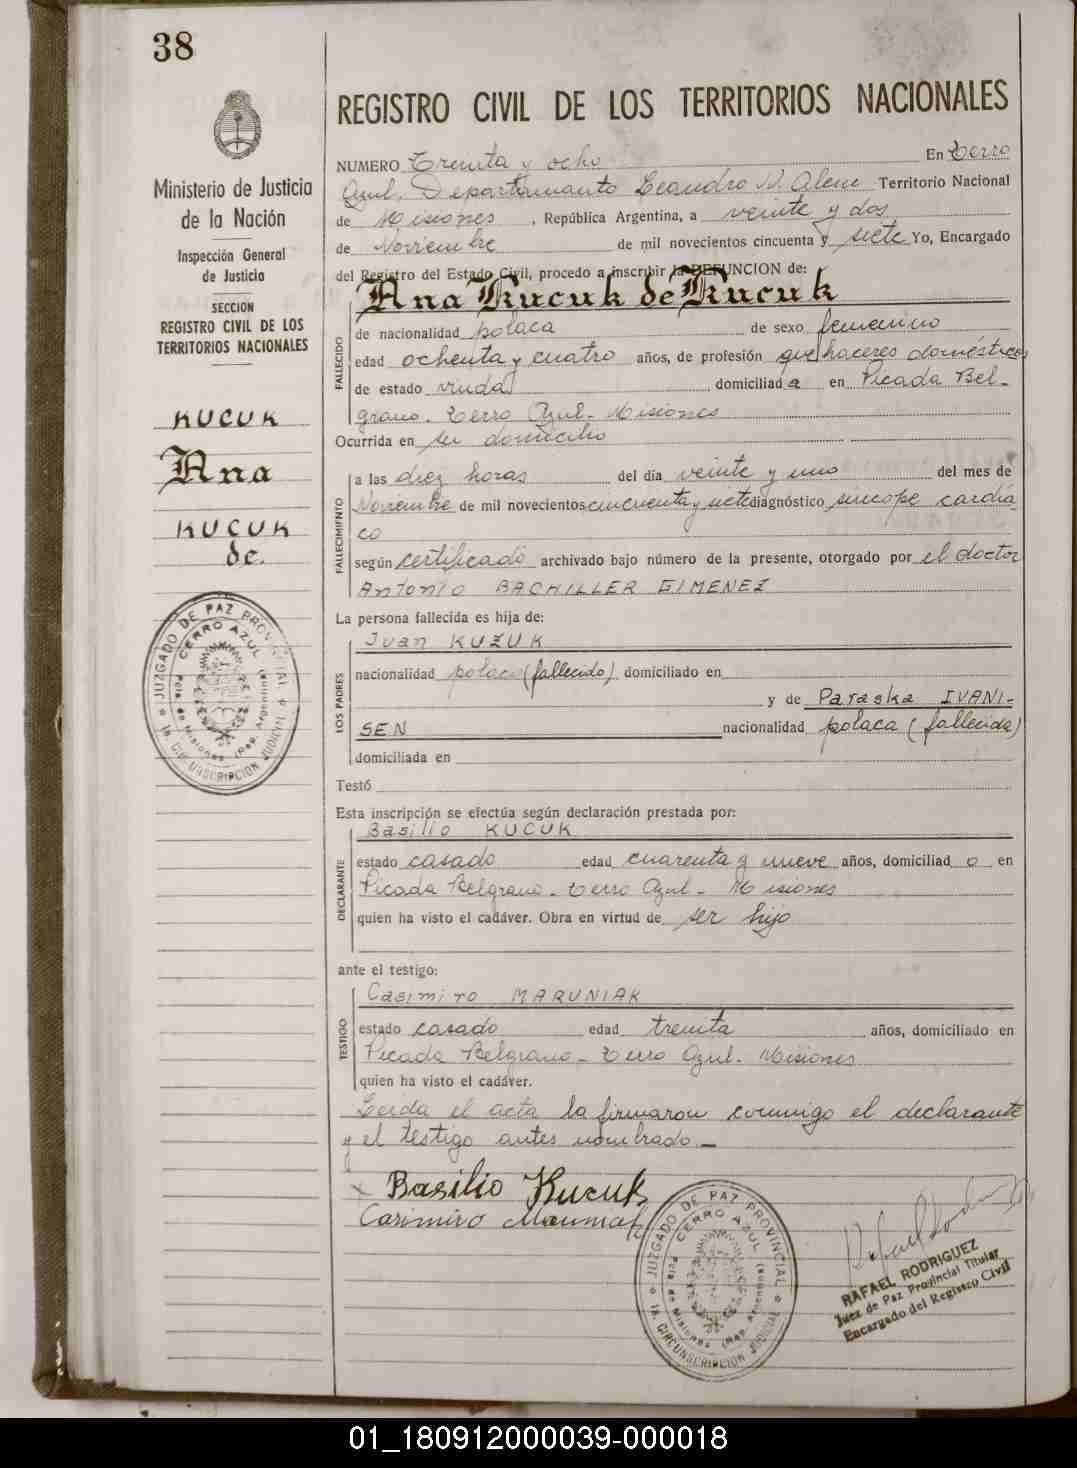 38
Ministerio de Justicia
de la Nación
Inspección General
de Justicia
SECCION
REGISTRO CIVIL DE LOS
TERRITORIOS NACIONALES
KUCUK
Ana
KUCUK
de.
JUZGADO DE PAZ PROVINCIAL
CERRO AZUL
Pcia. de Misiones (Rep. Argentina)
1a. CIRCUNSCRIPCION JUDICIAL
REGISTRO CIVIL DE LOS TERRITORIOS NACIONALES
NUMERO Treinta y ocho En Cerro
Azul. Departamento Leandro N. Alem Territorio Nacional
de Misiones , República Argentina, a veinte y dos
de Noviembre de mil novecientos cincuenta y siete Yo, Encargado
del Registro del Estado Civil, procedo a inscribir la DEFUNCION de:
Ana Kucuk de Kucuk
FALLECIDO
de nacionalidad polaca de sexo femenino
edad ochenta y cuatro años, de profesión quehaceres domésticos
de estado viuda domiciliad a en Picada Bel-
grano. Cerro Azul. Misiones
Ocurrida en su domicilio
FALLECIMIENTO
a las diez horas del día veinte y uno del mes de
Noviembre de mil novecientos cincuenta y siete diagnóstico síncope cardía
co
según certificado archivado bajo número de la presente, otorgado por el doctor
Antonio BACHILLER GIMENEZ
La persona fallecida es hija de:
LOS PADRES
Ivan KUZUK
nacionalidad polaco (fallecido) domiciliado en
y de Paraska IVANI-
SEN nacionalidad polaca (fallecida)
domiciliada en
Testó
Esta inscripción se efectúa según declaración prestada por:
DECLARANTE
Basilio KUCUK
estado casado edad cuarenta y nueve años, domiciliad o en
Picada Belgrano - Cerro Azul - Misiones
quien ha visto el cadáver. Obra en virtud de ser hijo
ante el testigo:
TESTIGO
Casimiro MARUNIAK
estado casado edad treinta años, domiciliado en
Picada Belgrano - Cerro Azul. Misiones
quien ha visto el cadáver.
Leida el acta la firmaron conmigo el declarante
y el testigo antes nombrado.-
x Basilio Kucuk
Casimiro Maruniak
JUZGADO DE PAZ PROVINCIAL
CERRO AZUL
Pcia. de Misiones (Rep. Argentina)
1a. CIRCUNSCRIPCION JUDICIAL
Rafael Rodriguez
RAFAEL RODRIGUEZ
Juez de Paz Provincial Titular
Encargado del Registro Civil
01_180912000039-000018